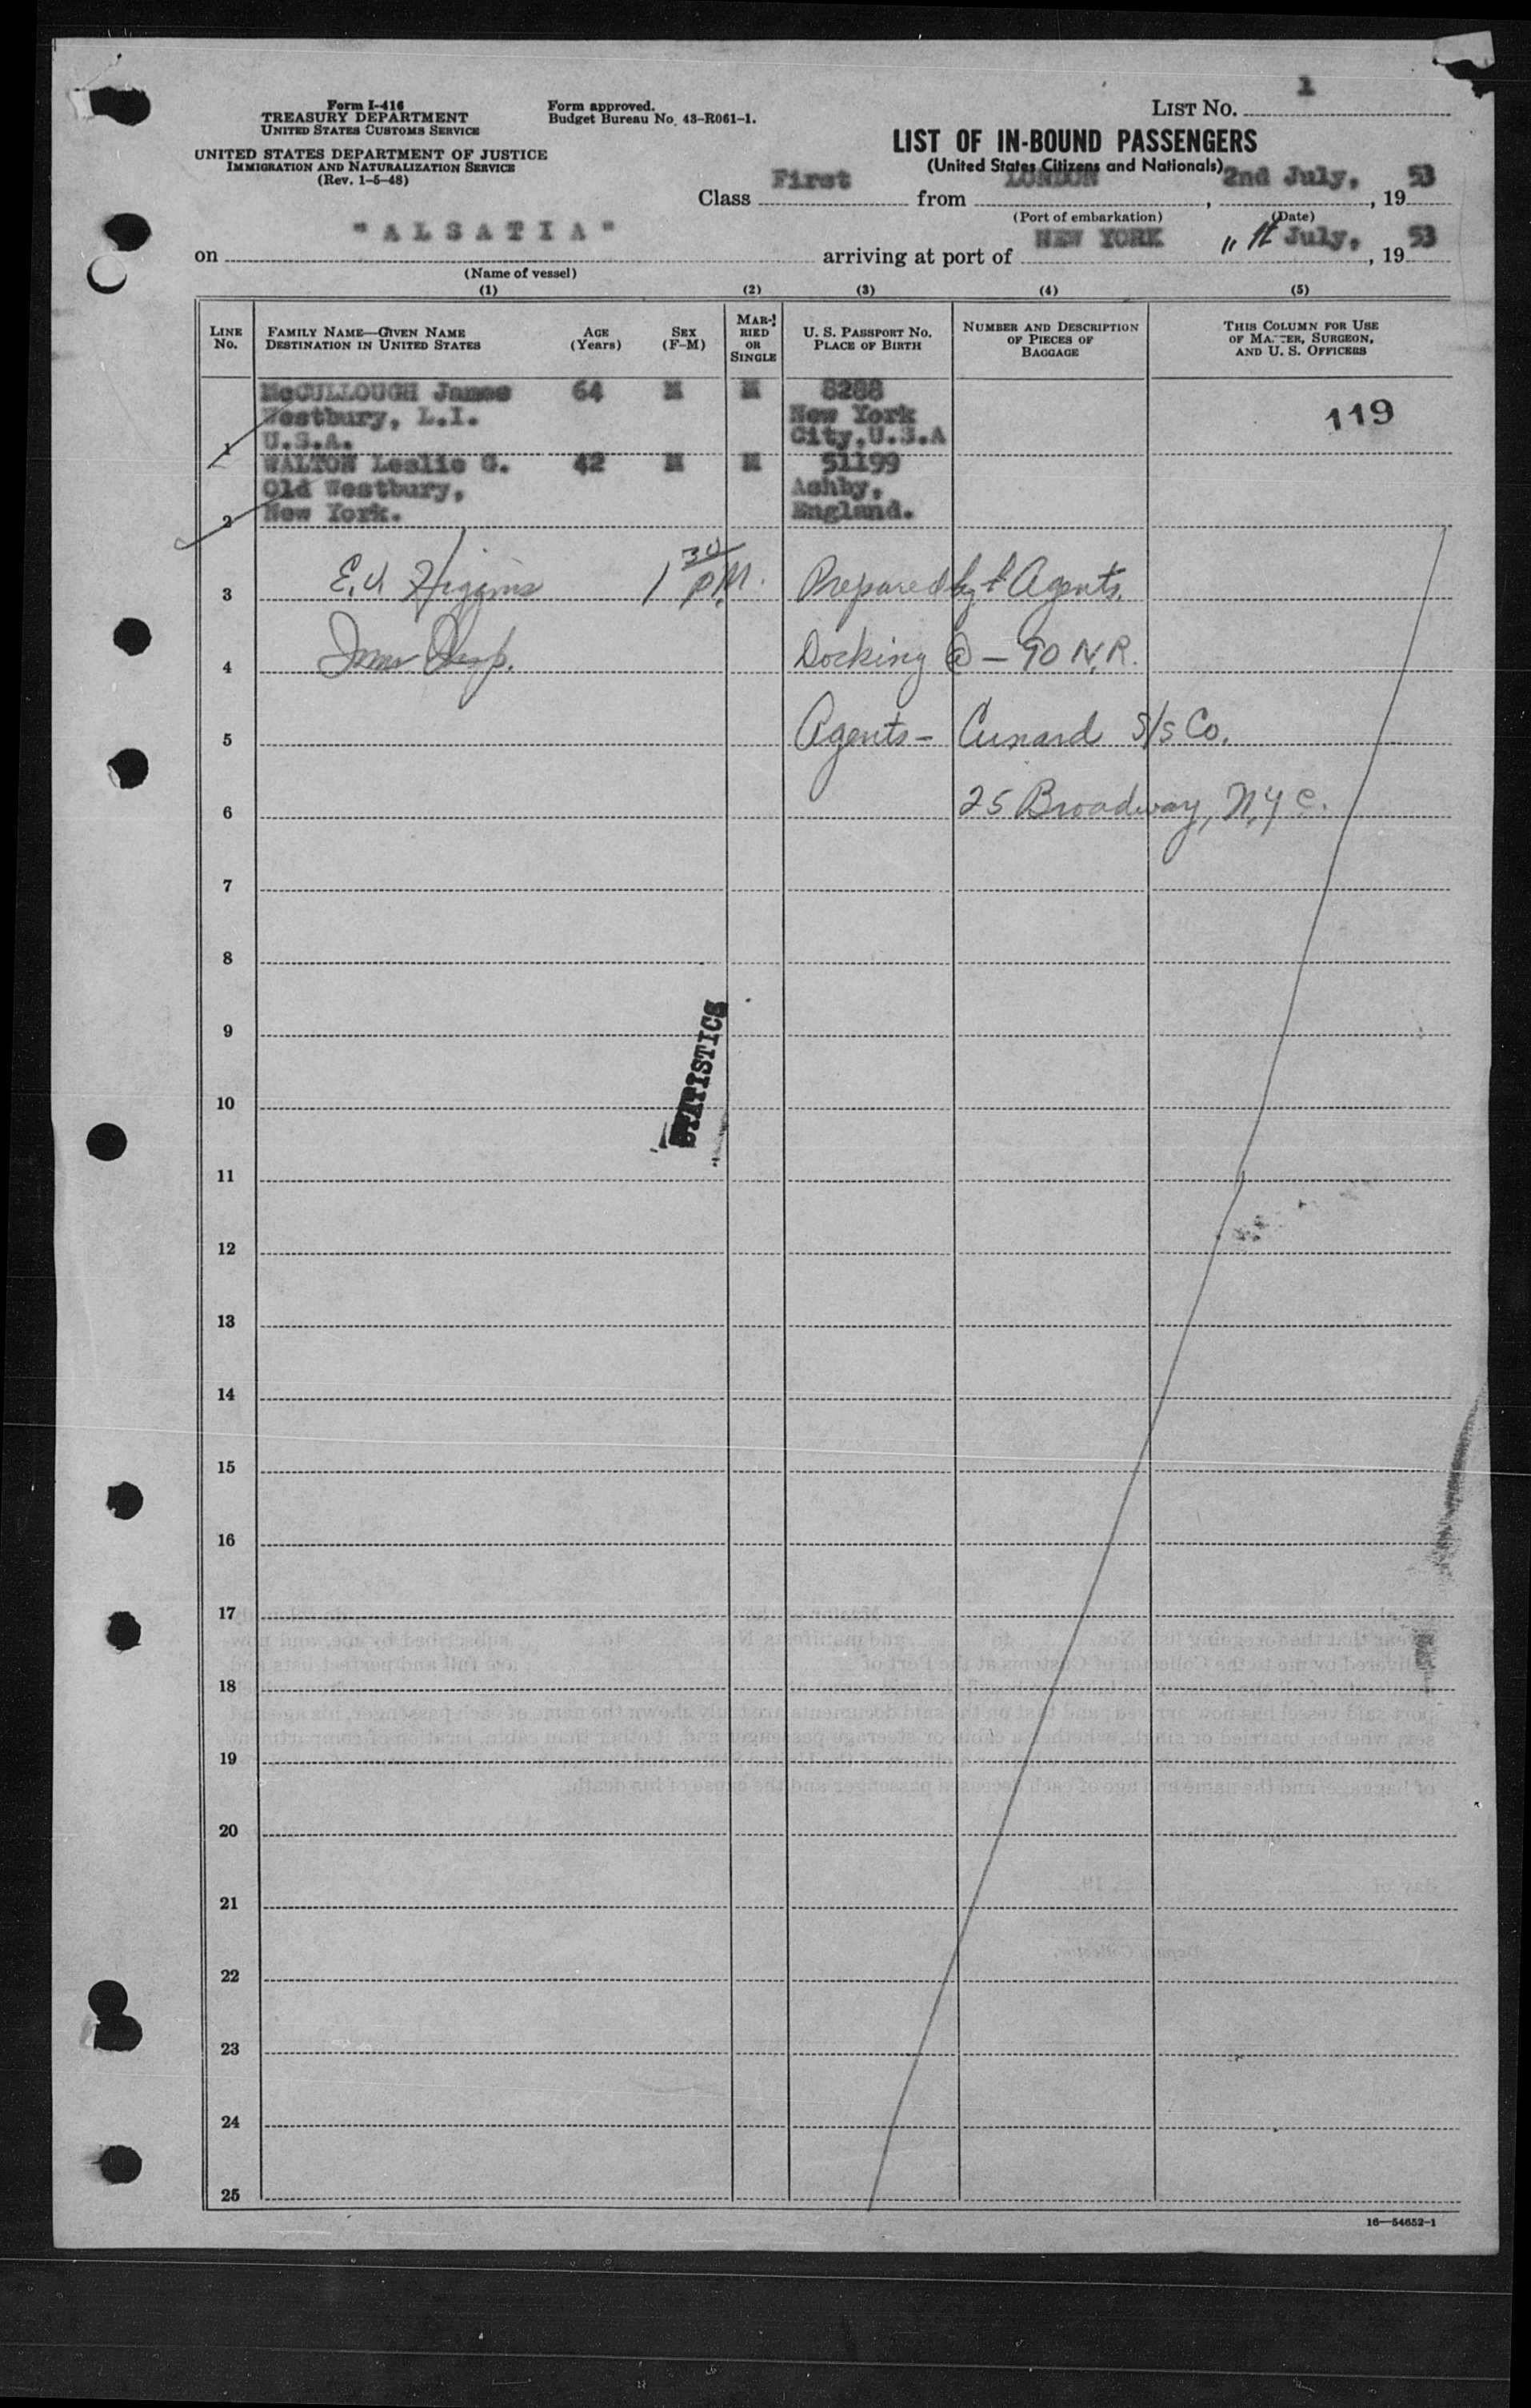 Form I-416
TREASURY DEPARTMENT
UNITED STATES CUSTOMS SERVICE
UNITED STATES DEPARTMENT OF JUSTICE
IMMIGRATION AND NATURALIZATION SERVICE
(Rev. 1-5-48)
Form approved.
Budget Bureau No. 43-R061-1.
LIST No. 1
LIST OF IN-BOUND PASSENGERS
(United States Citizens and Nationals)
Class First from LONDON, 2nd July, 1953
(Port of embarkation) (Date)
on "ALSATIA" arriving at port of NEW YORK July, 1953
(Name of vessel)
(1) (2) (3) (4) (5)
LINE No. FAMILY NAME—GIVEN NAME DESTINATION IN UNITED STATES AGE (Years) SEX (F-M) MARRIED OR SINGLE U. S. PASSPORT No. PLACE OF BIRTH NUMBER AND DESCRIPTION OF PIECES OF BAGGAGE THIS COLUMN FOR USE OF MASTER, SURGEON, AND U. S. OFFICERS
McCULLOUGH James 64 M M 8288
Westbury, L.I. New York 119
1 U.S.A. City,U.S.A
WALTON Leslie G. 42 M M 51199
Old Westbury, Ashby,
2 New York. England.
3 Higgins 1 30 PM. Prepared by Agents.
4 Docking @ — 90 N.R.
5 Agents — Cunard S/S Co.
6 25 Broadway, N.Y.C.
7
8
9
STATISTICS
10
11
12
13
14
15
16
17
18
19
20
21
22
23
24
25
16—54652-1